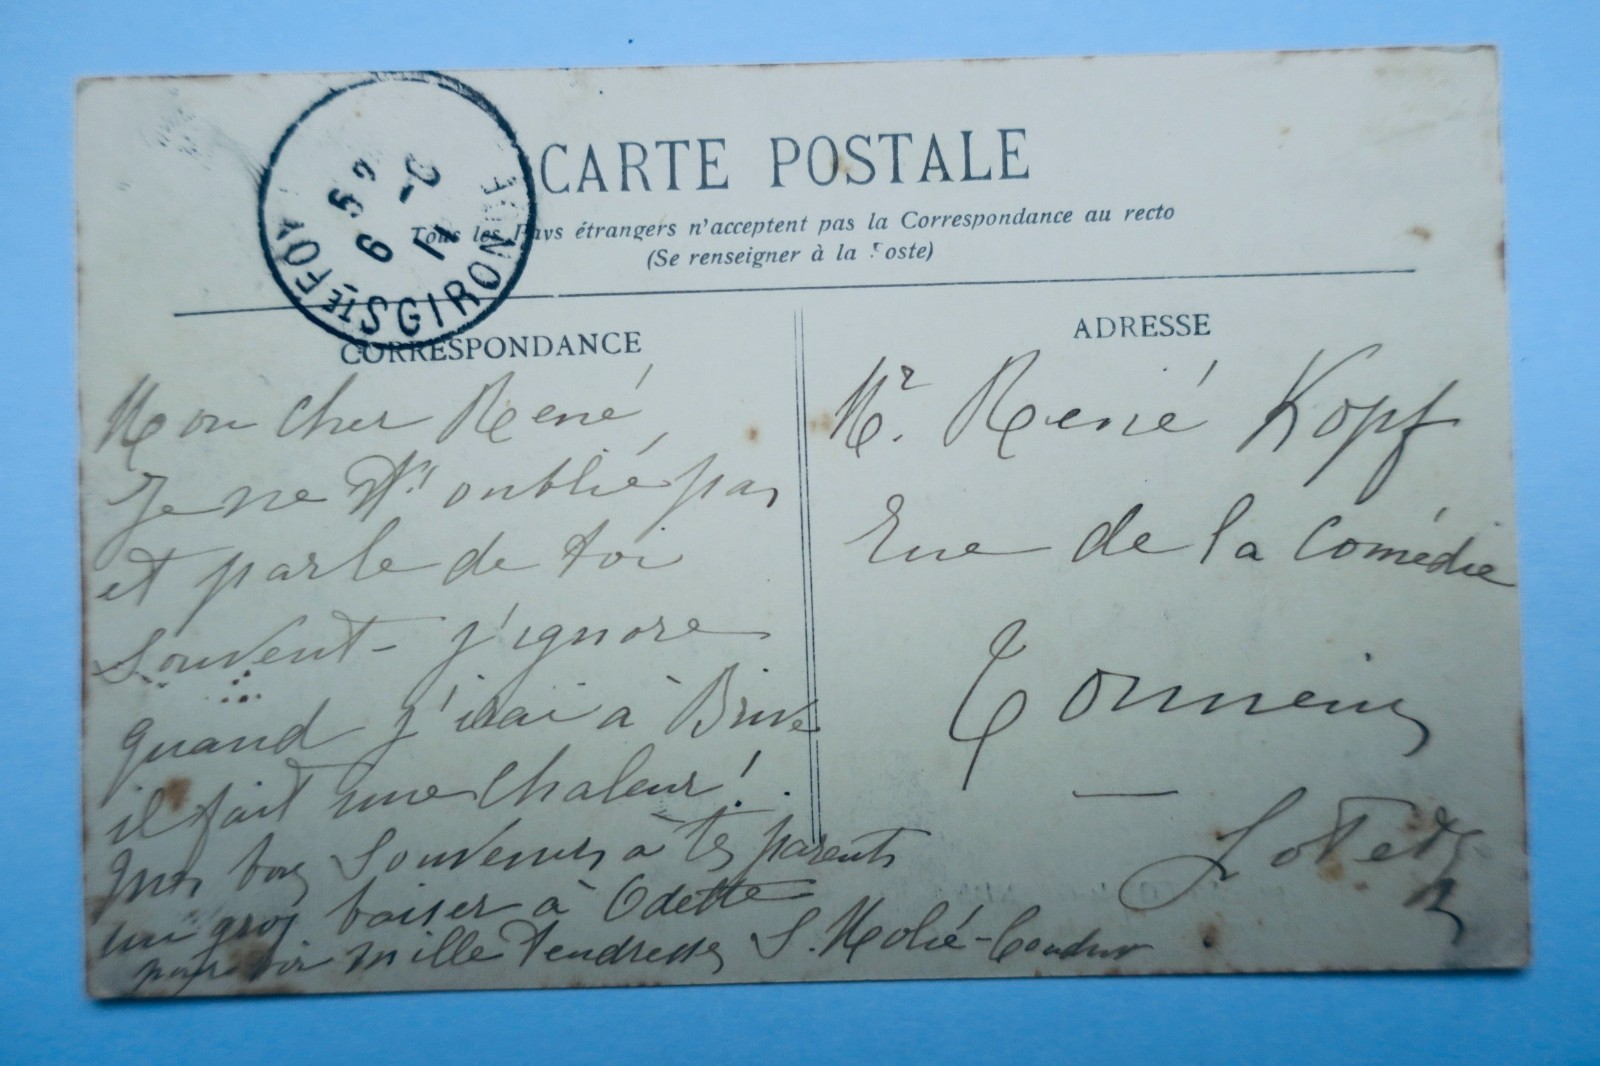 CARTE POSTALE
Tous les Pays étrangers n'acceptent pas la Correspondance au recto
(Se renseigner à la Poste)
STE FOY GIRONDE
CORRESPONDANCE
Mon cher René
Je ne t'ai oublié pas
et parle de toi
souvent - j'ignore
quand j'irai à Brive
il fait une chaleur!
mes bons souvenirs à tes parents
un gros baiser à Odette
pour toi mille tendresses S. Molié-
ADRESSE
Mr. René Kopf
Rue de la Comédie
Tonneins
Lot et